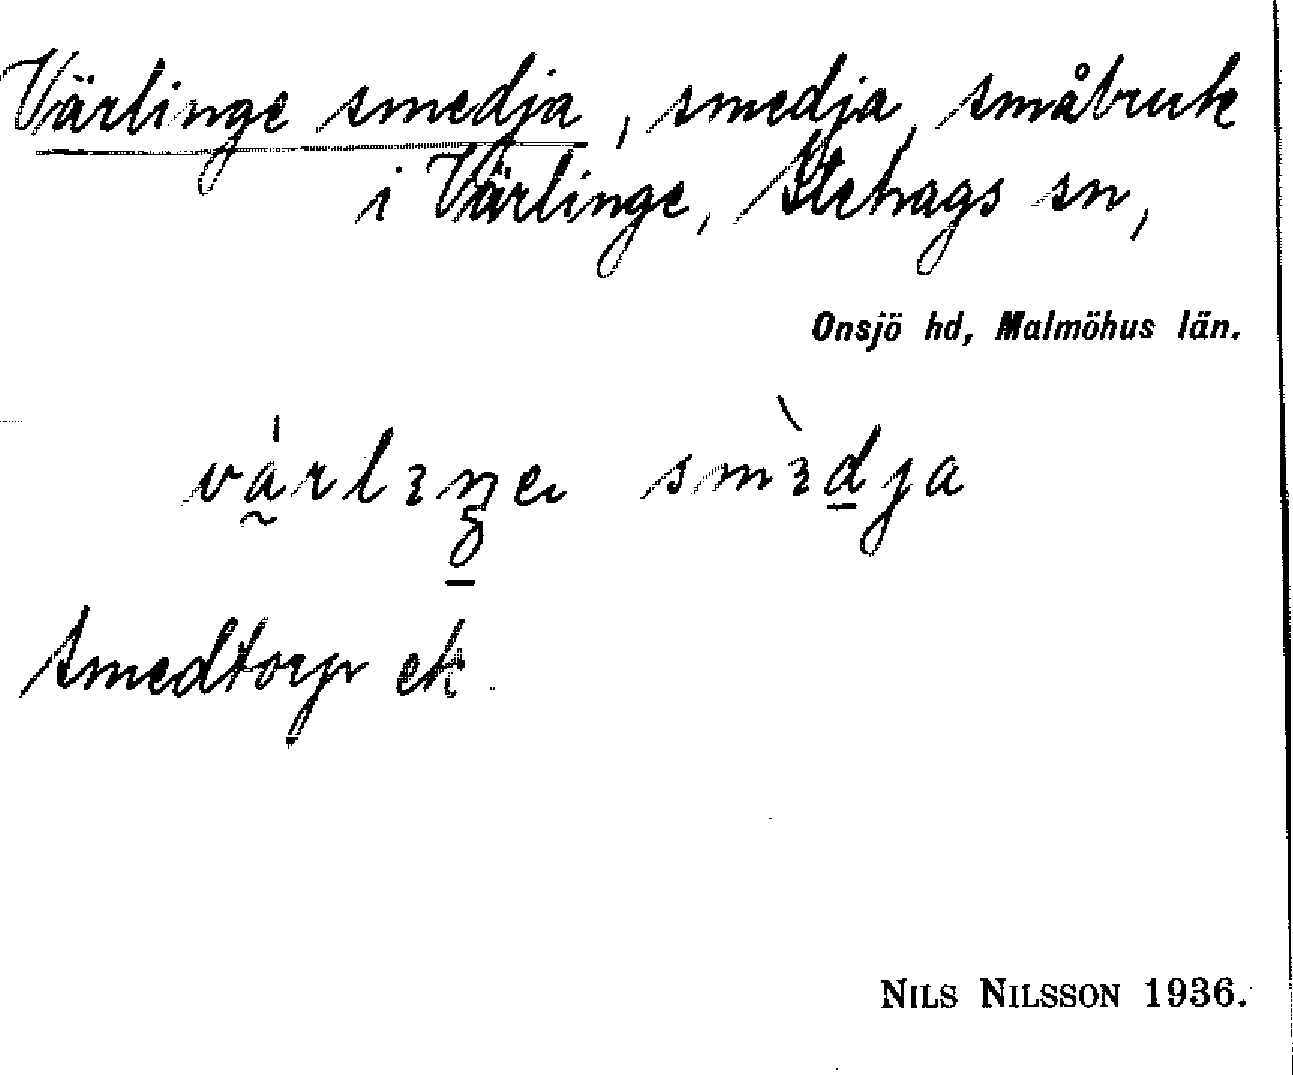 Värlinge smedja, smedja, småbruk
i Värlinge, Stehags sn,
Onsjö hd, Malmöhus län.
Smedtorp ek.
NILS NILSSON 1936.